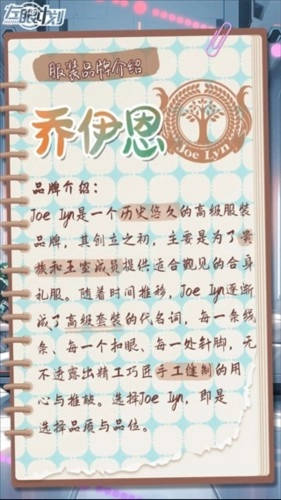 左眼计划
服装品牌介绍
乔伊恩
Joe Lyn
品牌介绍:
Joe Lyn是一个历史悠久的高级服装
品牌,其创立之初,主要是为了贵
族和王室成员提供适合觐见的合身
礼服。随着时间推移,Joe Lyn逐渐
成了高级套装的代名词,每一条线
条、每一个扣眼、每一处针脚,无
不透露出精工巧匠手工缝制的用
心与推敲。选择Joe Lyn,即是
选择品质与品位。